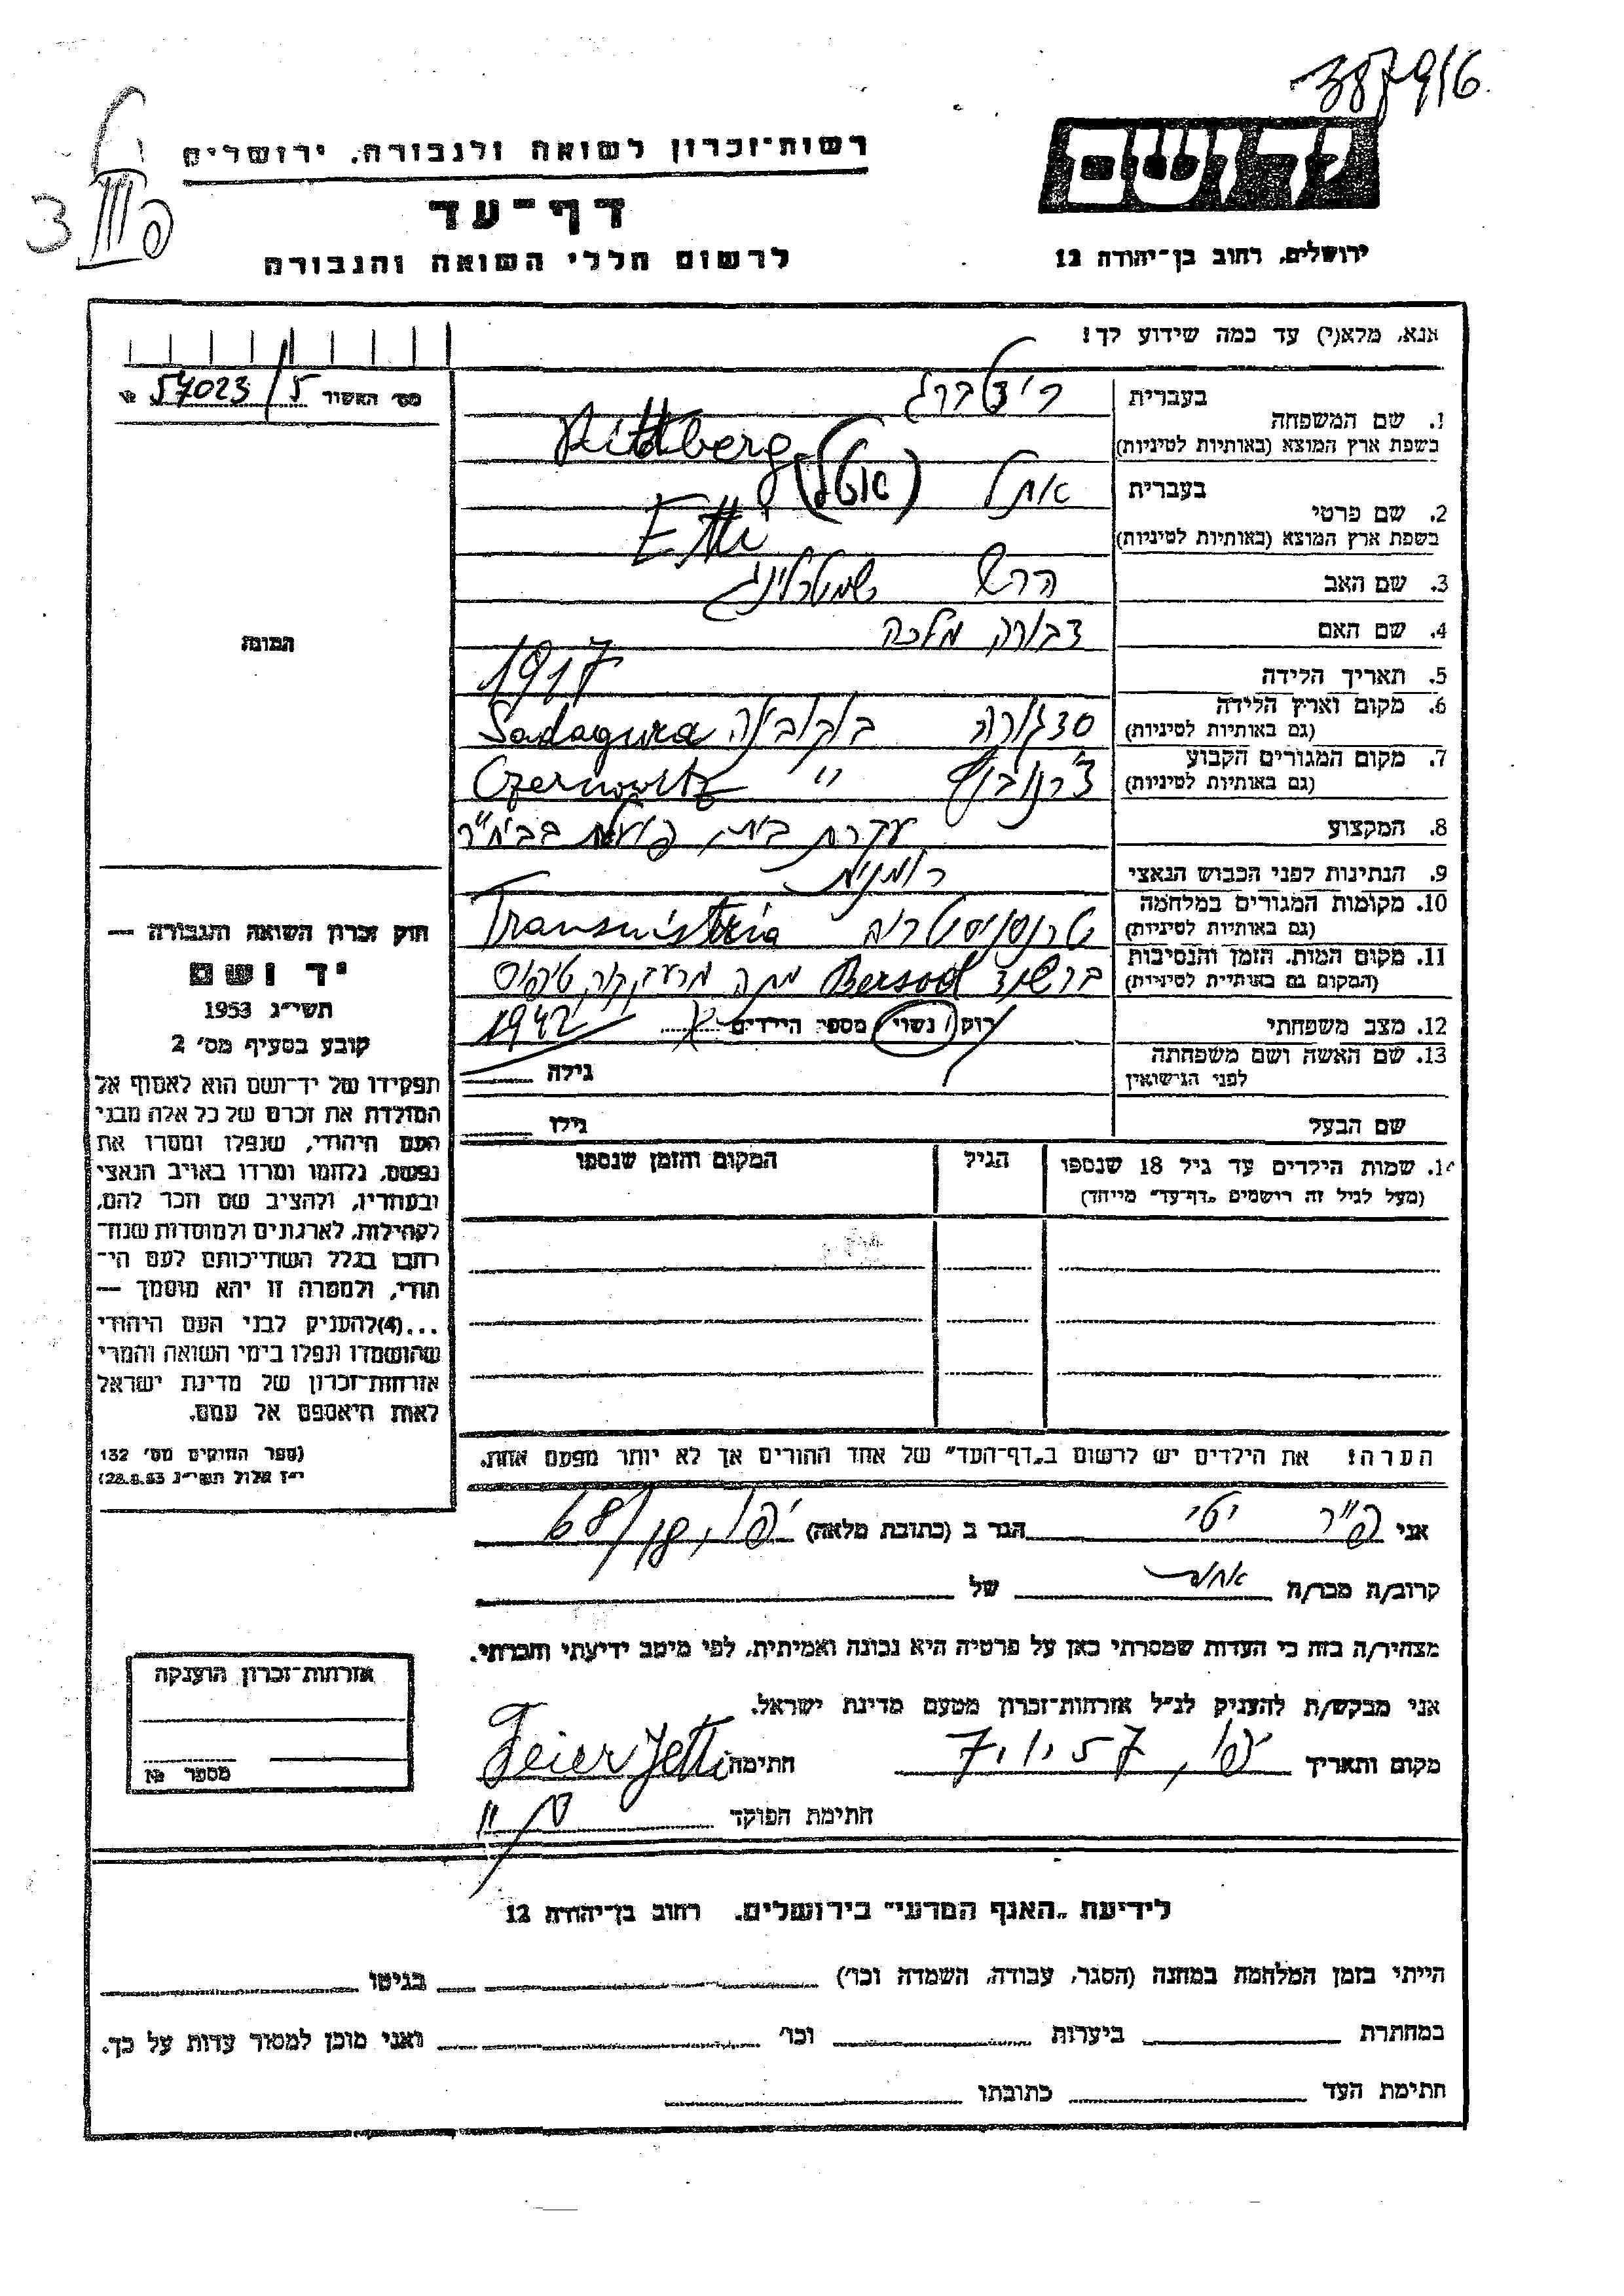 387916
רשות־זכרון לשואה ולגבורה, ירושלים
דף־עד
לרשום חללי השואה והגבורה
יד ושם
ירושלים, רחוב בן־יהודה 12
אנא, מלא(י) עד כמה שידוע לך!
מס׳ האשור 57023/5 №
1. שם המשפחה בעברית ריטברג
בשפת ארץ המוצא (באותיות לטיניות) Rittberg
2. שם פרטי בעברית אתל (אטל)
בשפת ארץ המוצא (באותיות לטיניות) Etti
3. שם האב הרש
4. שם האם דבורה מלכה
5. תאריך הלידה 1917
6. מקום וארץ הלידה סדגורה בוקובינה Sadagura
(גם באותיות לטיניות)
7. מקום המגורים הקבוע צ׳רנוביץ " Czernowitz
(גם באותיות לטיניות)
8. המקצוע עקרת בית, פועלת בביח"ר
9. הנתינות לפני הכבוש הנאצי רומנית
10. מקומות המגורים במלחמה טרנסניסטריה Transnistria
(גם באותיות לטיניות)
11. מקום המות, הזמן והנסיבות ברשד Bersad מתה מרעב, קור, טיפוס
(המקום גם באותיות לטיניות)
12. מצב משפחתי רוק/ נשוי מספר הילדים 1942
13. שם האשה ושם משפחתה לפני הנישואין גילה
שם הבעל גילו
14. שמות הילדים עד גיל 18 שנספו הגיל המקום והזמן שנספו
(מעל לגיל זה רושמים „דף־עד" מיוחד)
הערה! את הילדים יש לרשום ב„דף־העד" של אחד ההורים אך לא יותר מפעם אחת.
התמונה
חוק זכרון השואה והגבורה —
יד ושם
תשי״ג 1953
קובע בסעיף מס׳ 2
תפקידו של יד־ושם הוא לאסוף אל
המולדת את זכרם של כל אלה מבני
העם היהודי, שנפלו ומסרו את
נפשם, נלחמו ומרדו באויב הנאצי
ובעוזריו, ולהציב שם וזכר להם,
לקהילות, לארגונים ולמוסדות שנח־
רבו בגלל השתייכותם לעם הי־
הודי, ולמטרה זו יהא מוסמך —
...(4)להעניק לבני העם היהודי
שהושמדו ונפלו בימי השואה והמרי
אזרחות־זכרון של מדינת ישראל
לאות היאספם אל עמם.
(ספר החוקים מס׳ 132
י״ז אלול תשי״ג 28.8.53)
אני פייר יטי הגר ב (כתובת מלאה) יפו, 68/
קרוב/ה מכר/ה אחות של
מצהיר/ה בזה כי העדות שמסרתי כאן על פרטיה היא נכונה ואמיתית, לפי מיטב ידיעתי והכרתי.
אני מבקש/ת להעניק לנ״ל אזרחות־זכרון מטעם מדינת ישראל.
מקום ותאריך יפו, 7.1.57 חתימה Feier Jetti
חתימת הפוקד
אזרחות־זכרון הוענקה
מספר №
לידיעת „האגף המדעי" בירושלים, רחוב בן־יהודה 12
הייתי בזמן המלחמה במחנה (הסגר, עבודה, השמדה וכו׳) בגיטו
במחתרת ביערות וכו׳ ואני מוכן למסור עדות על כך.
חתימת העד כתובתו